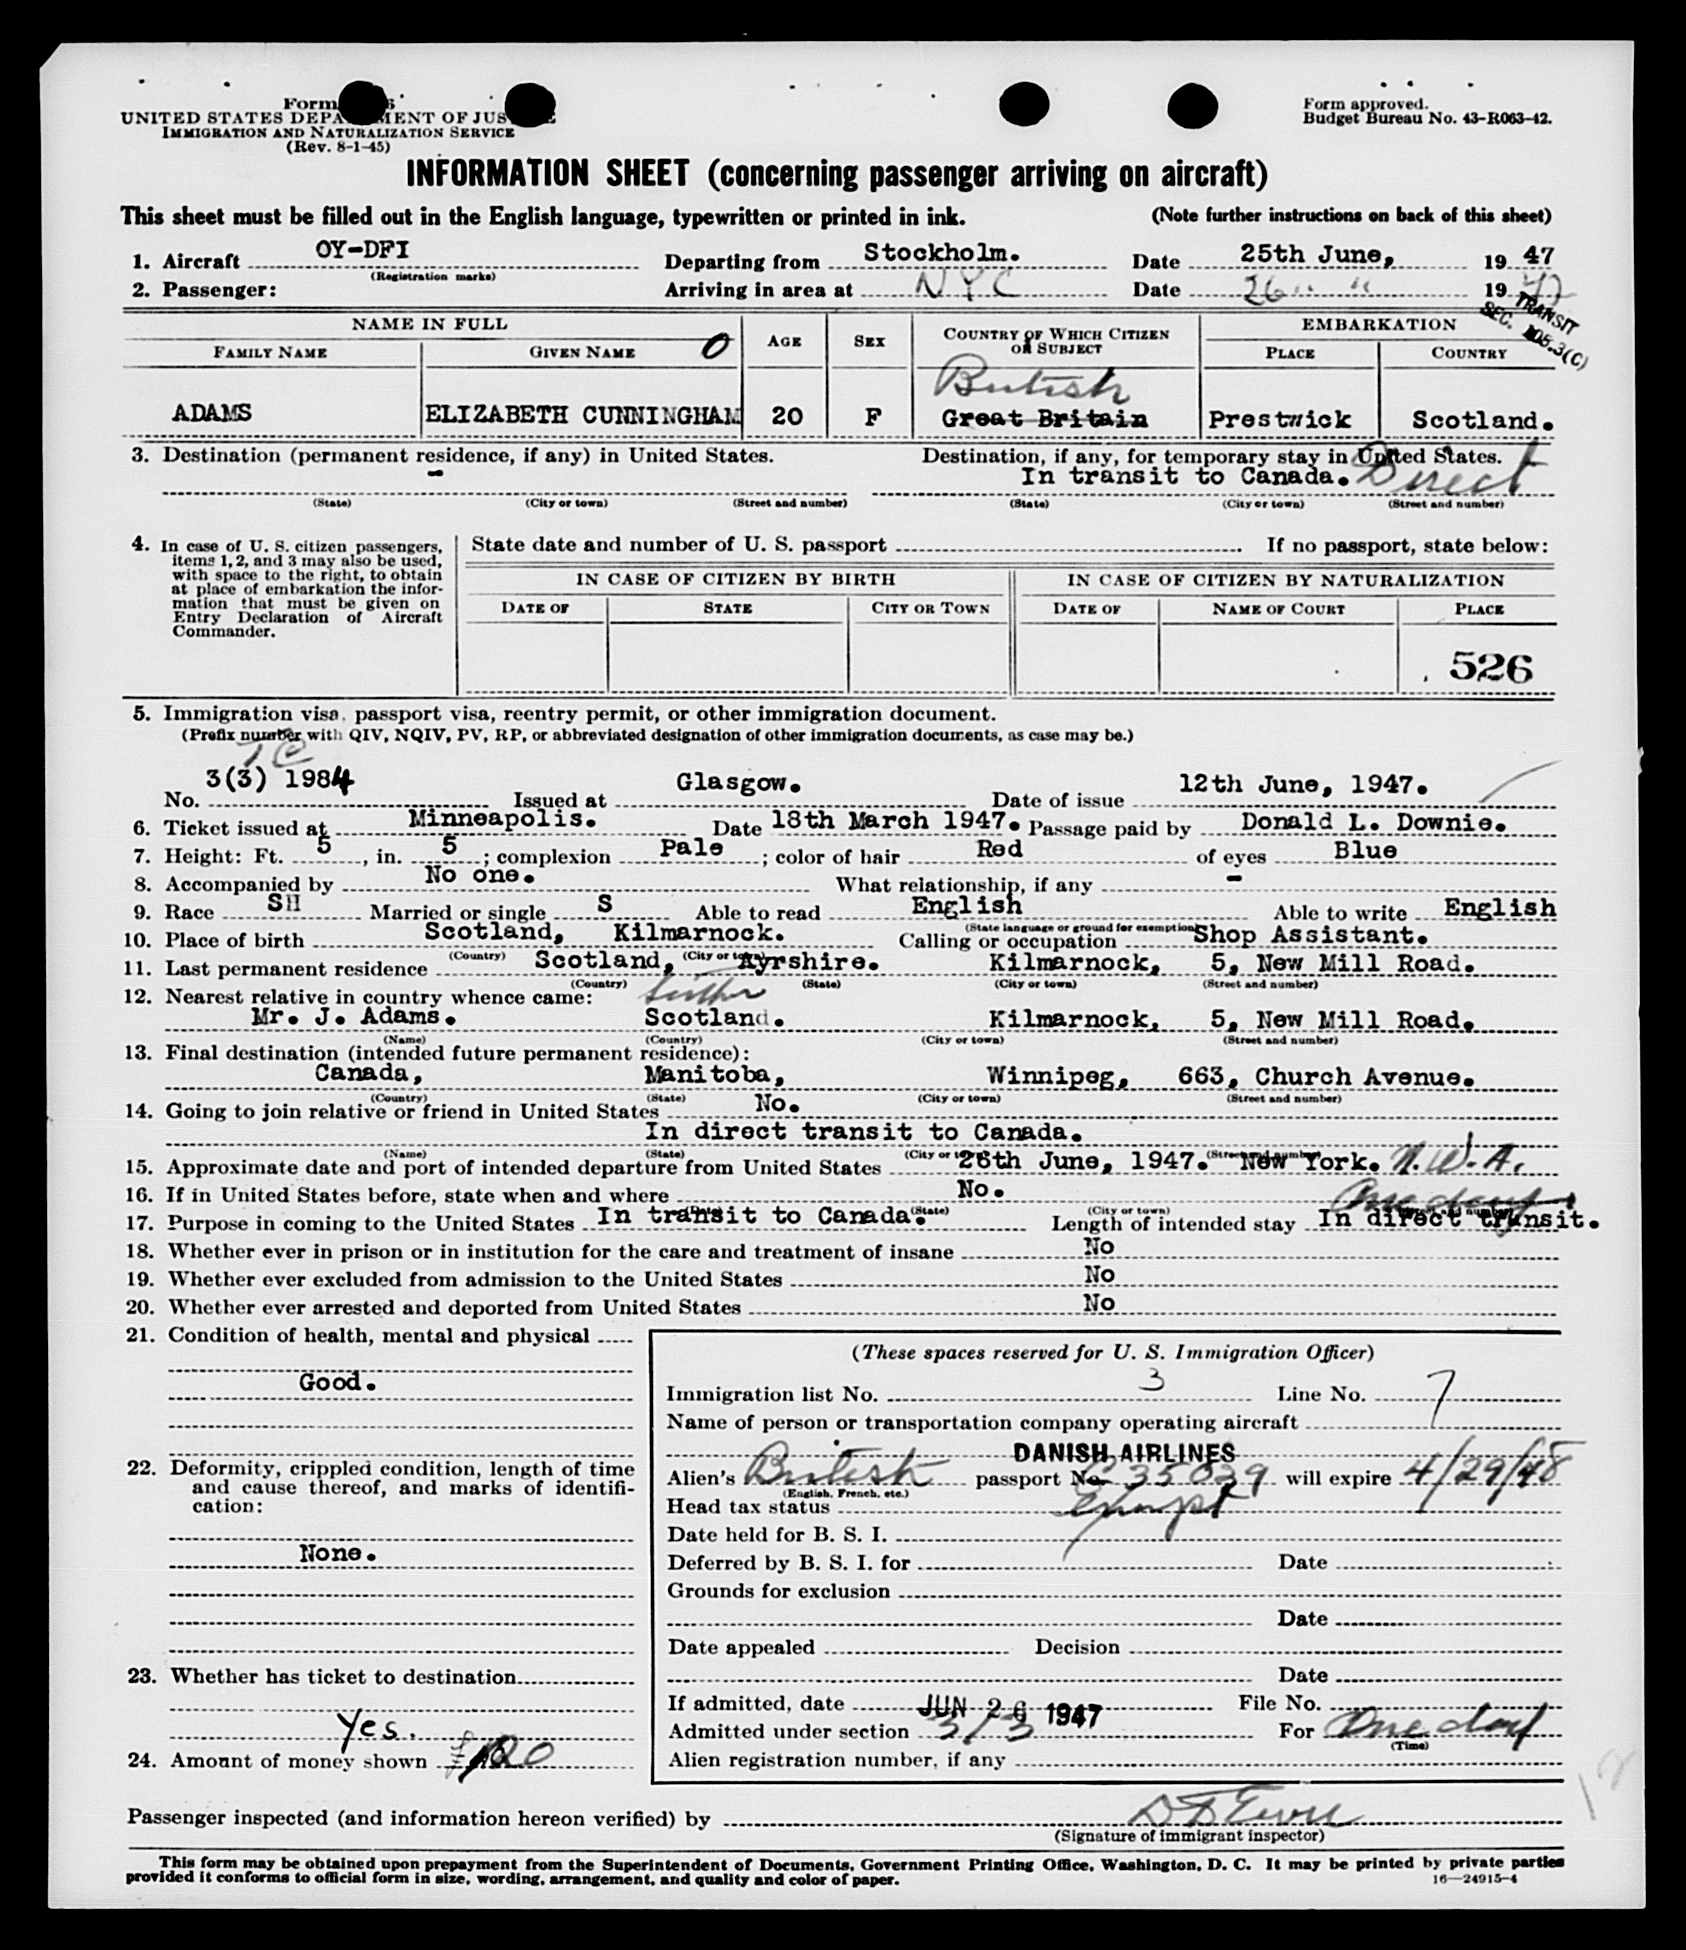 Form
UNITED STATES DEPARTMENT OF JUSTICE
IMMIGRATION AND NATURALIZATION SERVICE
(Rev. 8-1-45)
Form approved.
Budget Bureau No. 43-R063-42.
INFORMATION SHEET (concerning passenger arriving on aircraft)
This sheet must be filled out in the English language, typewritten or printed in ink. (Note further instructions on back of this sheet)
1. Aircraft OY-DFI Departing from Stockholm. Date 25th June, 1947
(Registration marks)
2. Passenger: Arriving in area at NYC Date 26 " " 1947
TRANSIT
SEC. 105.3(C)
NAME IN FULL AGE SEX COUNTRY OF WHICH CITIZEN OR SUBJECT EMBARKATION
FAMILY NAME GIVEN NAME O PLACE COUNTRY
British
ADAMS ELIZABETH CUNNINGHAM 20 F Great Britain Prestwick Scotland.
3. Destination (permanent residence, if any) in United States. Destination, if any, for temporary stay in United States.
- In transit to Canada. Direct
(State) (City or town) (Street and number) (State) (City or town) (Street and number)
4. In case of U. S. citizen passengers, items 1, 2, and 3 may also be used, with space to the right, to obtain at place of embarkation the information that must be given on Entry Declaration of Aircraft Commander.
State date and number of U. S. passport If no passport, state below:
IN CASE OF CITIZEN BY BIRTH IN CASE OF CITIZEN BY NATURALIZATION
DATE OF STATE CITY OR TOWN DATE OF NAME OF COURT PLACE
526
5. Immigration visa, passport visa, reentry permit, or other immigration document.
(Prefix number with QIV, NQIV, PV, RP, or abbreviated designation of other immigration documents, as case may be.)
TC
No. 3(3) 1984 Issued at Glasgow. Date of issue 12th June, 1947.
6. Ticket issued at Minneapolis. Date 18th March 1947. Passage paid by Donald L. Downie.
7. Height: Ft. 5, in. 5; complexion Pale; color of hair Red of eyes Blue
8. Accompanied by No one. What relationship, if any -
9. Race SH Married or single S Able to read English Able to write English
(State language or ground for exemption)
10. Place of birth Scotland, Kilmarnock. Calling or occupation Shop Assistant.
(Country) (City or town)
11. Last permanent residence Scotland, Ayrshire. Kilmarnock, 5, New Mill Road.
(Country) (State) (City or town) (Street and number)
12. Nearest relative in country whence came:
Mr. J. Adams. Scotland. Kilmarnock, 5, New Mill Road.
(Name) (Country) (City or town) (Street and number)
13. Final destination (intended future permanent residence):
Canada, Manitoba, Winnipeg, 663, Church Avenue.
(Country) (State) (City or town) (Street and number)
14. Going to join relative or friend in United States No.
In direct transit to Canada.
(Name) (State) (City or town) (Street and number)
15. Approximate date and port of intended departure from United States 26th June, 1947. New York. N.W.A.
16. If in United States before, state when and where No.
(State) (City or town) (Street and number)
One day
17. Purpose in coming to the United States In transit to Canada. Length of intended stay In direct transit.
18. Whether ever in prison or in institution for the care and treatment of insane No
19. Whether ever excluded from admission to the United States No
20. Whether ever arrested and deported from United States No
21. Condition of health, mental and physical
Good.
22. Deformity, crippled condition, length of time and cause thereof, and marks of identification:
None.
23. Whether has ticket to destination
Yes.
24. Amount of money shown
(These spaces reserved for U. S. Immigration Officer)
Immigration list No. 3 Line No. 7
Name of person or transportation company operating aircraft
DANISH AIRLINES
Alien's British passport No. 235039 will expire 4/29/48
(English, French, etc.)
Head tax status Exempt
Date held for B. S. I.
Deferred by B. S. I. for Date
Grounds for exclusion
Date
Date appealed Decision
Date
If admitted, date JUN 26 1947 File No.
Admitted under section 3/3 For One day
(Time)
Alien registration number, if any
Passenger inspected (and information hereon verified) by
(Signature of immigrant inspector)
This form may be obtained upon prepayment from the Superintendent of Documents, Government Printing Office, Washington, D. C. It may be printed by private parties
provided it conforms to official form in size, wording, arrangement, and quality and color of paper.
16—24915-4